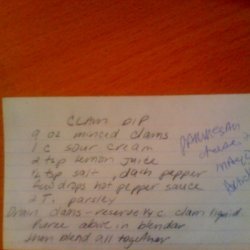 CLAM DIP
9 oz minced clams
1 c sour cream
2 tsp lemon juice
1/4 tsp salt, dash pepper
few drops hot pepper sauce
2 T. parsley
Drain clams - reserve 1/4 c. clam liquid
Puree above in blender
blend all together
PARMESAN
cheese